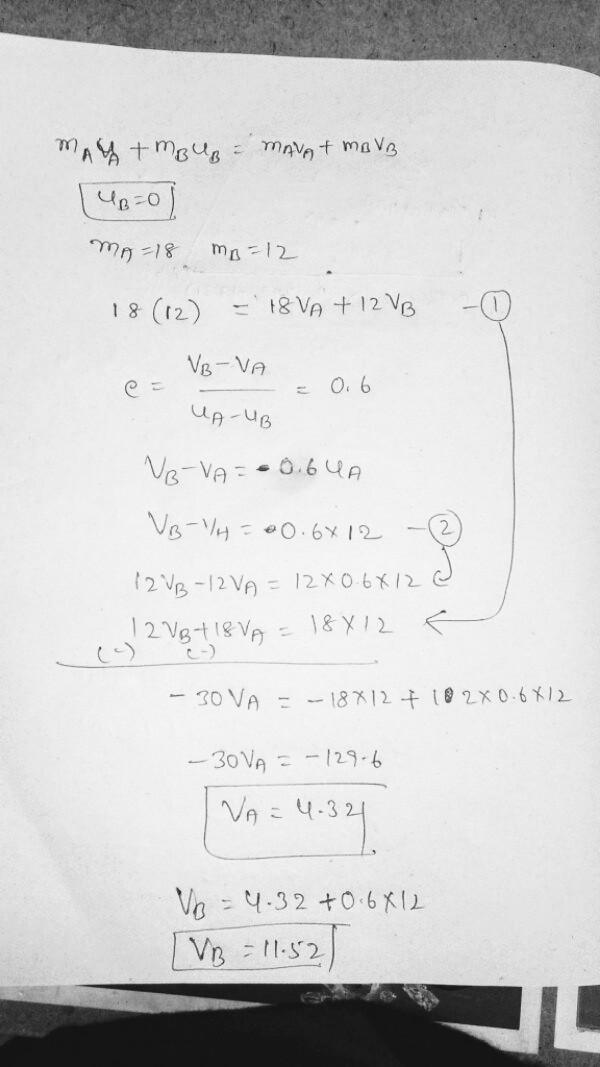 mAuA + mBuB = mAvA + mBvB
uB=0
mA=18 mB=12
18(12) = 18VA + 12VB - ①
e = VB-VA / uA-uB = 0.6
VB-VA = 0.6uA
VB-VA = 0.6×12 - ②
12VB-12VA = 12×0.6×12
12VB+18VA = 18×12
(-) (-)
-30VA = -18×12 + 12×0.6×12
-30VA = -129.6
VA = 4.32
VB = 4.32+0.6×12
VB = 11.52